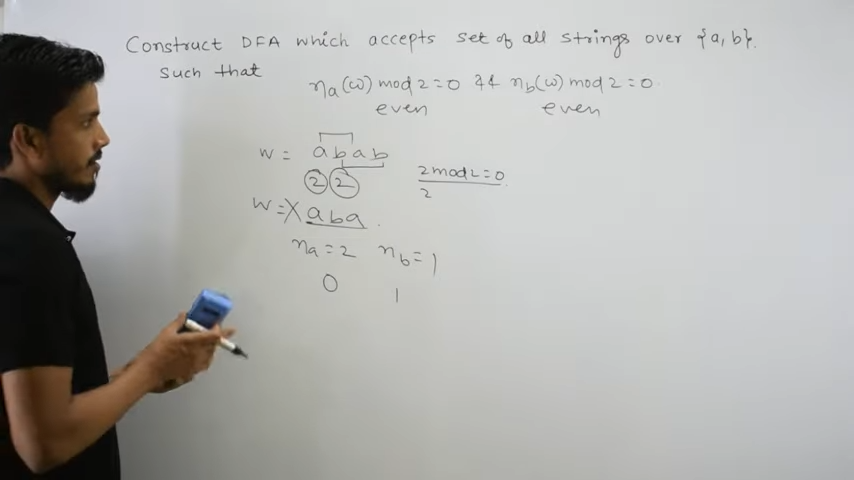 Construct DFA which accepts set of all strings over {a, b}.
such that
na(ω) mod 2 = 0 && nb(ω) mod 2 = 0.
even even
w = abab
2 mod 2 = 0
2 2
2
w = X aba.
na = 2 nb = 1
0 1